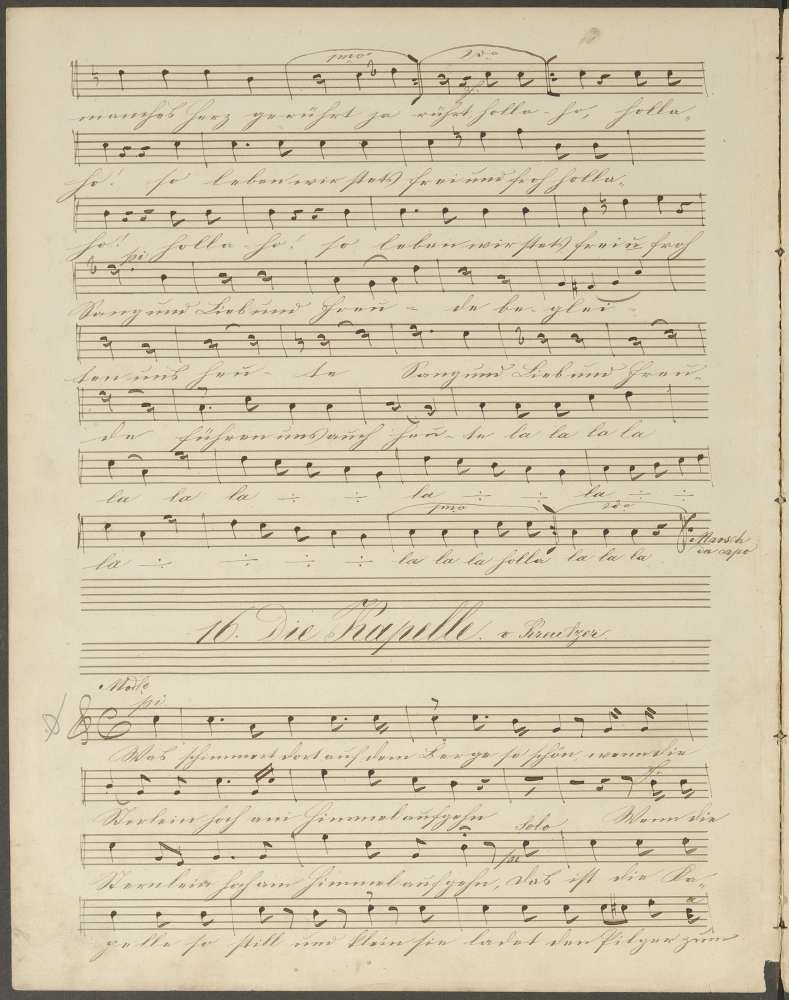 1mo 2do
manches Herz gerührt ja rührt, holla-ho, holla-
ho! so leben wir stets frei und froh holla-
ho! holla-ho! so leben wir stets frei u froh
pi
Sang und Lieb und Freu - de be-glei-
ten uns heu - te Sang und Lieb und Freu-
de führen uns auch heu-te la la la la
la la la ÷ ÷ la ÷ ÷ la ÷ ÷
1mo 2do
la ÷ ÷ ÷ ÷ la la la holla la la la
Marsch
da capo
16. Die Kapelle. v Kreutzer.
Modto
pi
Was schimmert dort auf dem Berge so schön, wenn die
Sternlein hoch am Himmel aufgehn Wenn die
Solo
pi
Sternlein hoch am Himmel aufgehn, das ist die Ka-
pelle so still und klein sie ladet den Pilger zum